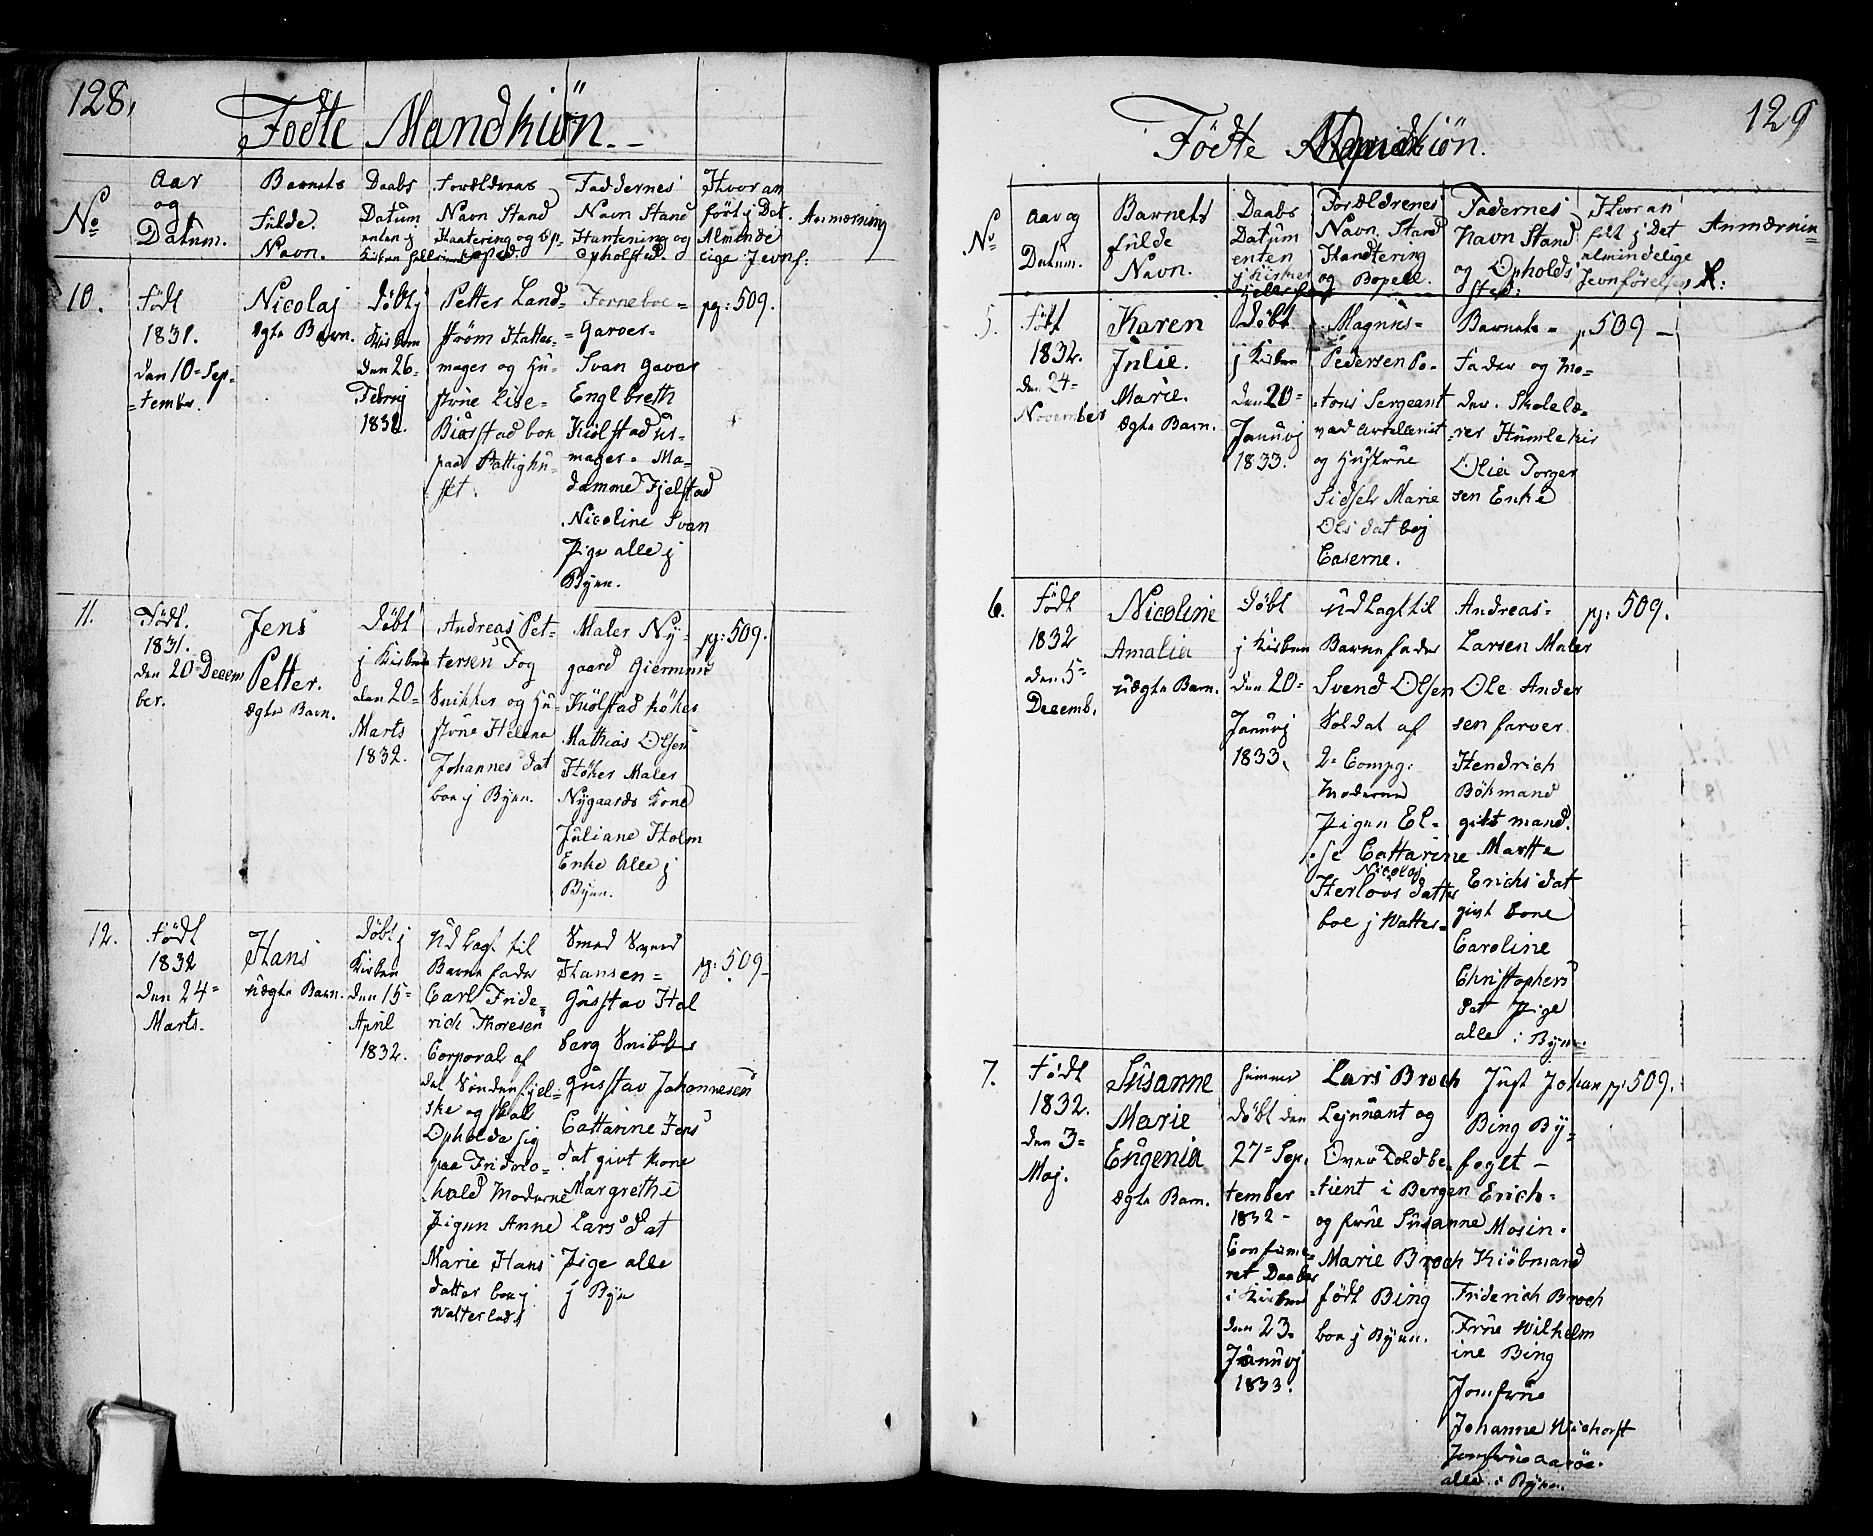 128.
Födte Mandkiön.
No
Aar
og
Datum.
Barnets
fulde.
Navn.
Daabs
Datum
enten j
Kirken heller
Forældrenes
Navn Stand
Hantering og Op-
Faddernes
Navn Stand
Hantering og
Opholsted.
Hvor an
fört j Det
Almende
lige Jevnf:
Anmerning
10.
Födt
1831.
den 10= Sep-
=tember.
Nicolaj
Egte Barn.
Döbt j
Kirken
den 26=
Februj
1832.
Petter Land=
ström Hatte-
mager og Hu-
strue Lise=
Biørstad boe
paa Fattighu-
set.
Forneboe=
=Garver=
Svan Gaver
Englbreth
Kiölstad Ur-
mager= Ma-
damme Fjelstad
Nicoline Svan
Pige alle j
Byen.
pg: 509.
11.
Födt.
1831.
den 20 Decem
ber.
Jens
Petter.
Egte Barn.
Döbt
j Kirken
den 20=
Marts
1832.
Andreas Pet-
tersen Fog
Snikker og Hu-
strue Helena
Johannes dat
boe j Byen.
Maler Ny-
gaard Giermnis
Kiölstad Höker
Mathias Olsen
Höker Maler
Nygaards Kone
Juliane Holm
Enke Alle j
Byen.
pg: 509.
12.
Födt
1832
den 24=
Marts.
Hans
uegte Barn.
Döbt j
Kirken
den 15=
April
1832.
Udlagt til
Barne fader
Carl Fride=
rich Thoresen
Corporal af
det Söndenfjel=
ske og skal
Opholde sig
paa Fridric=
hald Moderne
Pigen Anne
Marie Hans
datter boe j
Walterløds
Smed Svend
Hansen=
Gustav Hol
berg Snikker
Gustav Johannesen
Cattarine Jens
dat givt Kone
Margrethe
Lars dat
Pige alle
j Byen
pg: 509-
129
Födte Mandkiön.
No
Aar og
Datum.
Barnets
fulde
Navn.
Daabs
Datum
enten
j Kirken
Forældrenes
Navn, Stand
Handtering
og Bopæl.
Fadernes
Navn Stand
og Opholds
sted:
Hvor an
fört j Det
almindelige
Jevnförelses R:
Anmærnin=
5.
Födt
1832.
den 24=
November
Karen
Julie.
Marie.
Egte Barn.
Döbt
j Kirken
den 20=
Januvj
1833.
Magnus=
Pedersen Po=
tons Sergeant
ved Artileriet
og Hustrue
Sidsels Marie
Ols dat boj
Caserne.
Barnets=
Fader og Mo=
der. Skolelæ=
rer Humlekir
Olia Torger
sen Enke
p. 509 -
6.
Födt
1832
den 5=
Decemb.
Nicoline
Amalia
uegte Barn.
Döbt
j Kirken
den 20=
Januvj
1833.
Udlagt til
Barne fader
Svend Olsen
Soldat af
2= Compg:
Moderen
Pigen El-
se Cattarine
Nicolaj
Herlovs datter
boe j Watter=
Andreas=
Larsen Maler
Ole Ander
sen farver
Hendrich
Bökmand
givt mand.
Martte
Erichs dat
givt Kone
Caroline
Christophers
dat Pige
alle i Byen.
pg: 509.
7.
Födt
1832.
den 3=
Maj.
Susanne
Marie
Eugenia
Egte Barn.
himme
döbt den
27= Sep.
tember
1832-
Confirme-
ret Daaben
i Kirken
den 23.
Januvj
1833.
Lars Broch
Lejnnant og
Over Toldbe-
=tient i Bergen
og frue Susanne
Marie Broch
födt Bing
boe j Byen.
Just Johan
Bing By=
foget -
Erich=
Mosin=
Kiöbmand
Friderich Broch
Frue Wilhelm
ine Bing
Jomfrue
Johanne Wiehorst
Jomfrue Aaröe.
alle i Byen.
pg: 509.